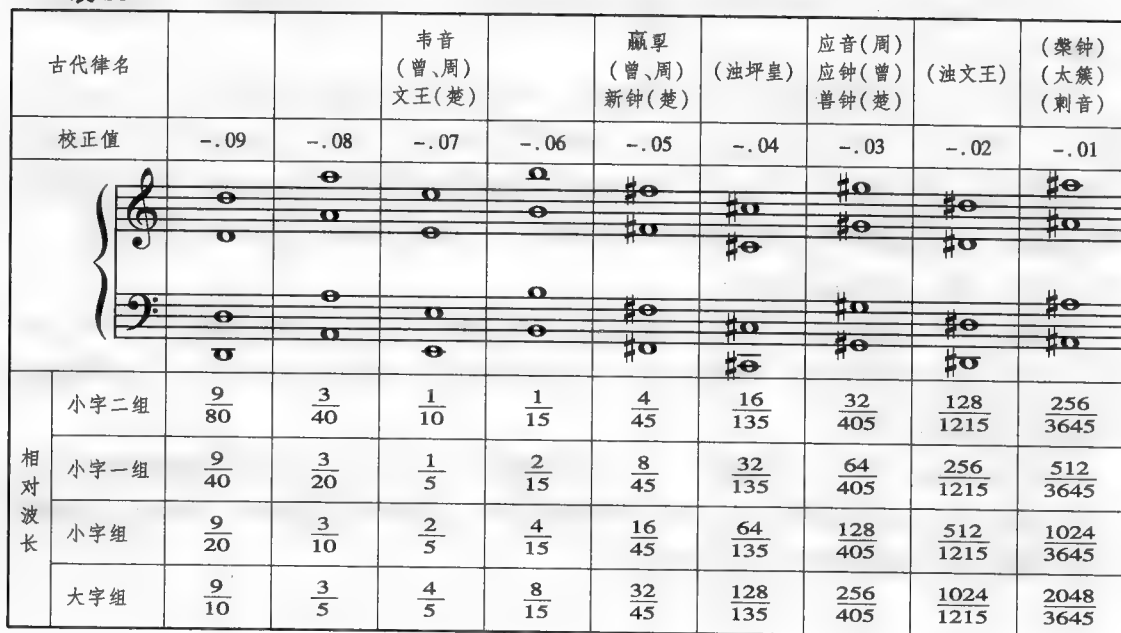 古代律名 韦音(曾、周)文王(楚) 嬴孠(曾、周)新钟(楚) (浊坪皇) 应音(周)应钟(曾)兽钟(楚) (浊文王) (檠钟)(太簇)(刺音)
校正值 -.09 -.08 -.07 -.06 -.05 -.04 -.03 -.02 -.01
相对波长
小字二组 9/80 3/40 1/10 1/15 4/45 16/135 32/405 128/1215 256/3645
小字一组 9/40 3/20 1/5 2/15 8/45 32/135 64/405 256/1215 512/3645
小字组 9/20 3/10 2/5 4/15 16/45 64/135 128/405 512/1215 1024/3645
大字组 9/10 3/5 4/5 8/15 32/45 128/135 256/405 1024/1215 2048/3645